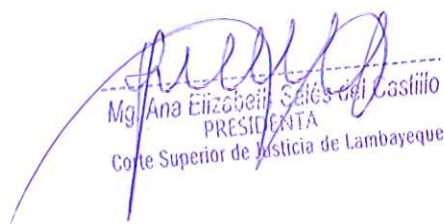 Mg. Ana Elizabeth Salés del Castillo
PRESIDENTA
Corte Superior de Justicia de Lambayeque